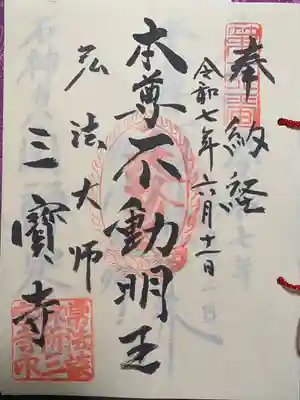 奉納経
令和七年六月十一日
本尊不動明王
弘法大师
三寳寺